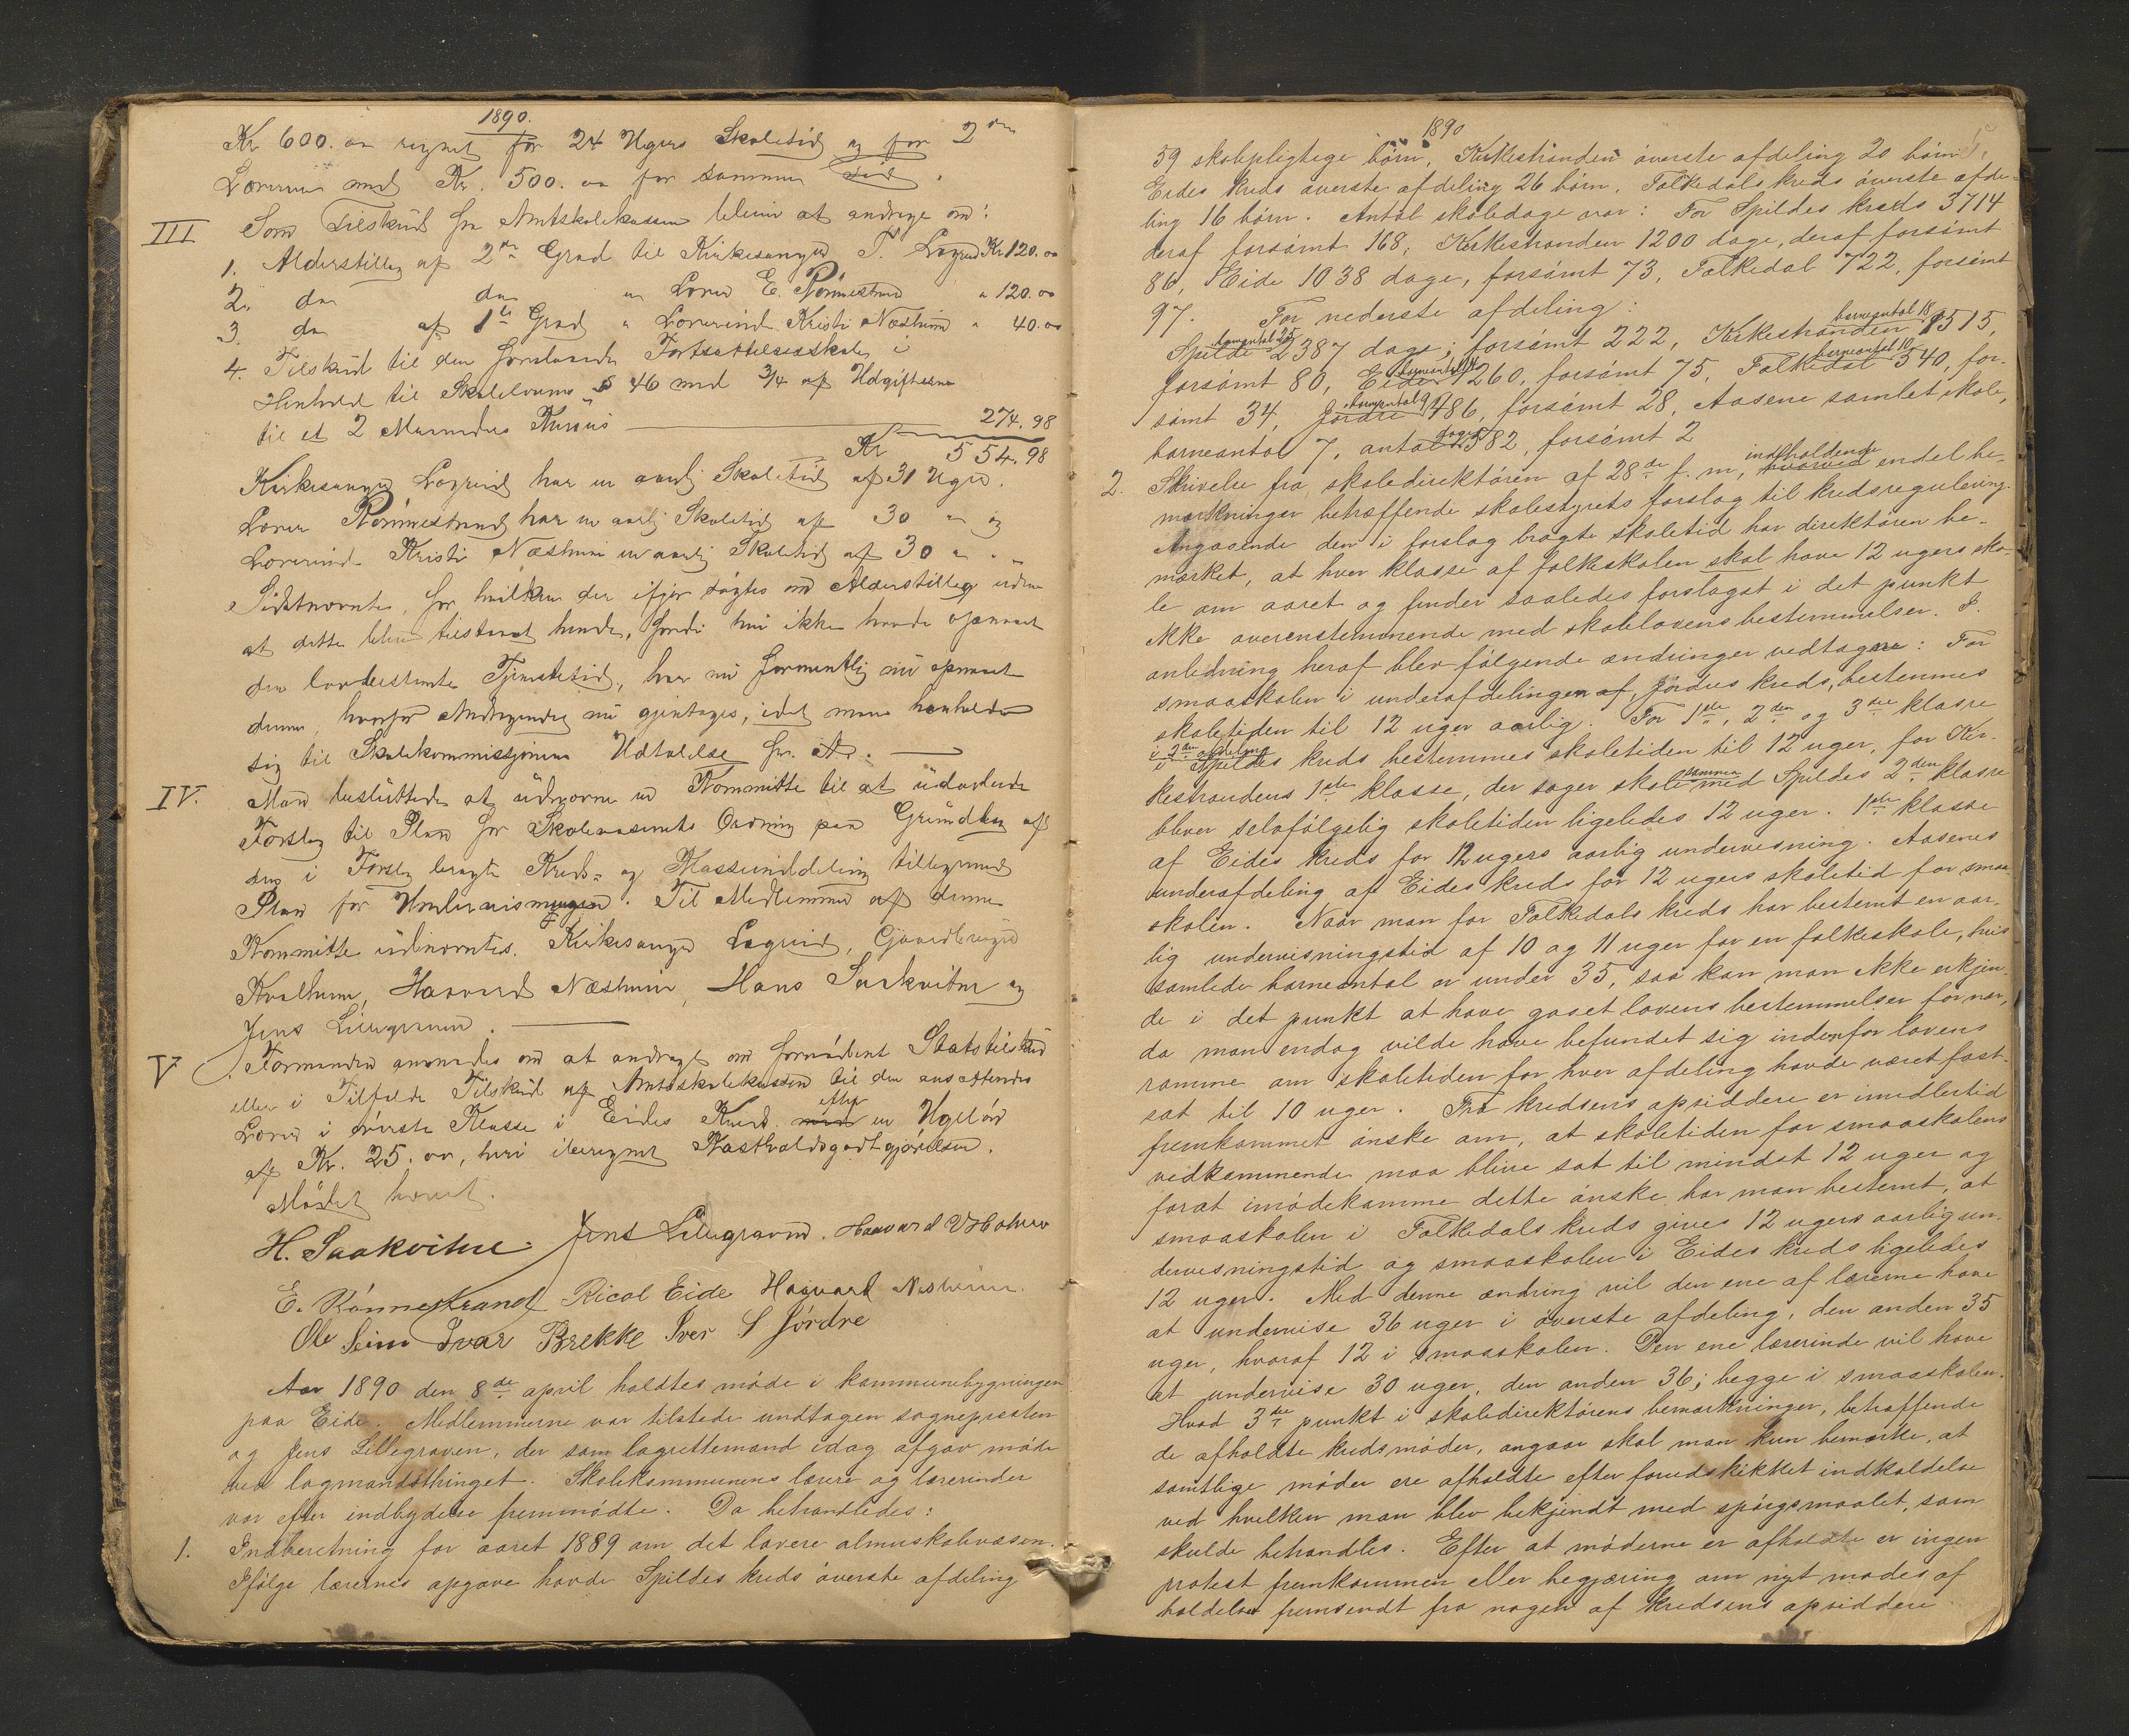 1890.
Kr 600.oo regnet for 24 Ugers Skoletid og for 2den
Lærerinde med Kr. 500.oo for samme Tid.
III Som Tilskud fra Amtskolekassen blev at andrage om:
1. Alderstillæg af 2den Grad til Kirkesanger T. Løgreid Kr 120.oo
2. do do " Lærer E. Rönnestrand " 120.oo
3. do af 1ste Grad " Lærerinde Kristi Næsheim " 40.oo
4. Tilskud til den foreslaaede Fortsættelsesskole i
Henhold til Skolelovens § 46 med 3/4 af Udgifterne
til et 2 Maaneders Kursus 274.98
Kr 554.98
Kirkesanger Løgreid har en aarlig Skoletid af 31 Uger.
Lærer Rönnestrand har en aarlig Skoletid af 30 " og
Lærerinde Kristi Næsheim en aarlig Skoletid af 30 " .
Sidstnævnte, for hvilken der ifjor søgtes om Alderstillæg uden
at dette blev tilstaaet hende, fordi hun ikke havde opnaaet
den lovbestemte Tjenestetid, har nu formentlig opnaaet
denne, hvorfor Andragendet nu gjentages, idet man henholder
sig til Skolekommissjonens Udtalelse f. A.
IV. Man besluttede at udnævne en Kommitte til at udarbeide
Forslag til Plan for Skolevæsenets Ordning paa Grundlag af
den i Forslag bragte Kreds- og Klasseinddeling tilligemed
Plan for Undervisningen. Til Medlemmer af denne
Kommitte udnævntes Kirkesanger Løgreid, Gaardbruger
Kvalheim, Haavard Næsheim, Hans Saakvitne og
Jens Lillegraven.
V. Formanden anmodes om at andrage om fornødent Statstilskud
eller i Tilfælde Tilskud af Amtsskolekassen til den ansættendes
Lærer i øverste Klasse i Eides Kreds med efter en Ugeløn
af Kr. 25.oo, heri iberegnet Kostholdsgodtgjørelsen.
Mødet hævet.
H. Saakvitne. Jens Lillegraven. Haavard
E. Rönnestrand Ricol Eide Haavard Nesheim.
Ole Seim Ivar Brekke Iver S Jördre
Aar 1890 den 8de april holdtes møde i kommunebygningen
paa Eide. Medlemmerne var tilstede undtagen sognepresten
og Jens Lillegraven, der som lagrettemand idag afgav møde
ved lagmandsthinget. Skolekommunens lærere og lærerinder
var efter indbydelse fremmödte. Da behandledes:
1. Indberetning for aaret 1889 om det lavere almueskolevæsen.
Ifölge lærernes opgave havde Spildes kreds överste afdeling
1890
59 skolepligtige börn, Kirkestranden överste afdeling 20 börn,
Eides kreds överste afdeling 26 börn, Folkedals kreds överste afde-
ling 16 börn. Antal skoledage var: For Spildes kreds 3714
deraf forsömt 168, Kirkestranden 1200 dage, deraf forsömt
86, Eide 1038 dage, forsömt 73, Folkedal 722, forsömt
97. For nederste afdeling:
barneantal 25 barneantal 18
Spilde 2387 dage; forsömt 222, Kirkestranden 1515,
barneantal 14 barneantal 10
forsömt 80, Eide 1260, forsömt 75, Folkedal 540, for-
barneantal 9
sömt 34, Jördre 486, forsömt 28, Aasene samlet skole,
barneantal 7, antal dage 382, forsömt 2
2. Skrivelse fra skoledirektören af 28de f. m., hvorved indholdende endel be-
mærkninger betræffende skolestyrets forslag til kredsregulering.
Angaaende den i forslag bragte skoletid har direktören be-
mærket, at hver klasse af folkeskolen skal have 12 ugers sko-
le om aaret og finder saaledes forslaget i det punkt
ikke overenstemmende med skolelovens bestemmelser. I
anledning heraf blev fölgende ændringer vedtagne: For
smaaskolen i underafdelingen af, Jördres kreds, bestemmes
skoletiden til 12 uger aarlig. For 1ste, 2den og 3die klasse
i 2den afdeling
i Spildes kreds bestemmes skoletiden til 12 uger, for Kir-
kestrandens 1ste klasse, der söger skole sammen med Spildes 2den klasse
bliver selvfölgelig skoletiden ligeledes 12 uger. 1ste klasse
af Eides kreds for 12 ugers aarlig undervisning. Aasenes
underafdeling af Eides kreds for 12 ugers skoletid for smaa-
skolen. Naar man for Folkedals kreds har bestemt en aar-
lig undervisningstid af 10 og 11 uger for en folkeskole, hvis
samlede barneantal er under 35, saa kan man ikke erkjen-
de i det punkt at have gaaet lovens bestemmelser for nær,
da man endog vilde have befundet sig indenfor lovens
ramme om skoletiden for hver afdeling havde været fast-
sat til 10 uger. Fra kredsens opsiddere er imidlertid
fremkommet önske om, at skoletiden for smaaskolens
vedkommende maa blive sat til mindst 12 uger og
forat imödekomme dette önske har man bestemt, at
smaaskolen i Folkedals kreds gives 12 ugers aarlig un-
dervisningstid og smaaskolen i Eides kreds ligeledes
12 uger. Med denne ændring vil den ene af lærerne have
at undervise 36 uger i överste afdeling, den anden 35
uger, hvoraf 12 i smaaskolen. Den ene lærerinde vil have
at undervise 30 uger, den anden 36; begge i smaaskolen.
Hvad 3die punkt i skoledirektörens bemærkninger, betræffende
de afholdte kredsmöder, angaar skal man kun bemærke, at
samtlige möder ere afholdte efter forudskikket indkaldelse
ved hvilken man blev bekjendt med spörgsmaalet, som
skulde behandles. Efter at möderne er afholdte er ingen
protest fremkommen eller begjæring om nyt mödes af
holdelse fremsendt fra nogen af kredsens opsiddere